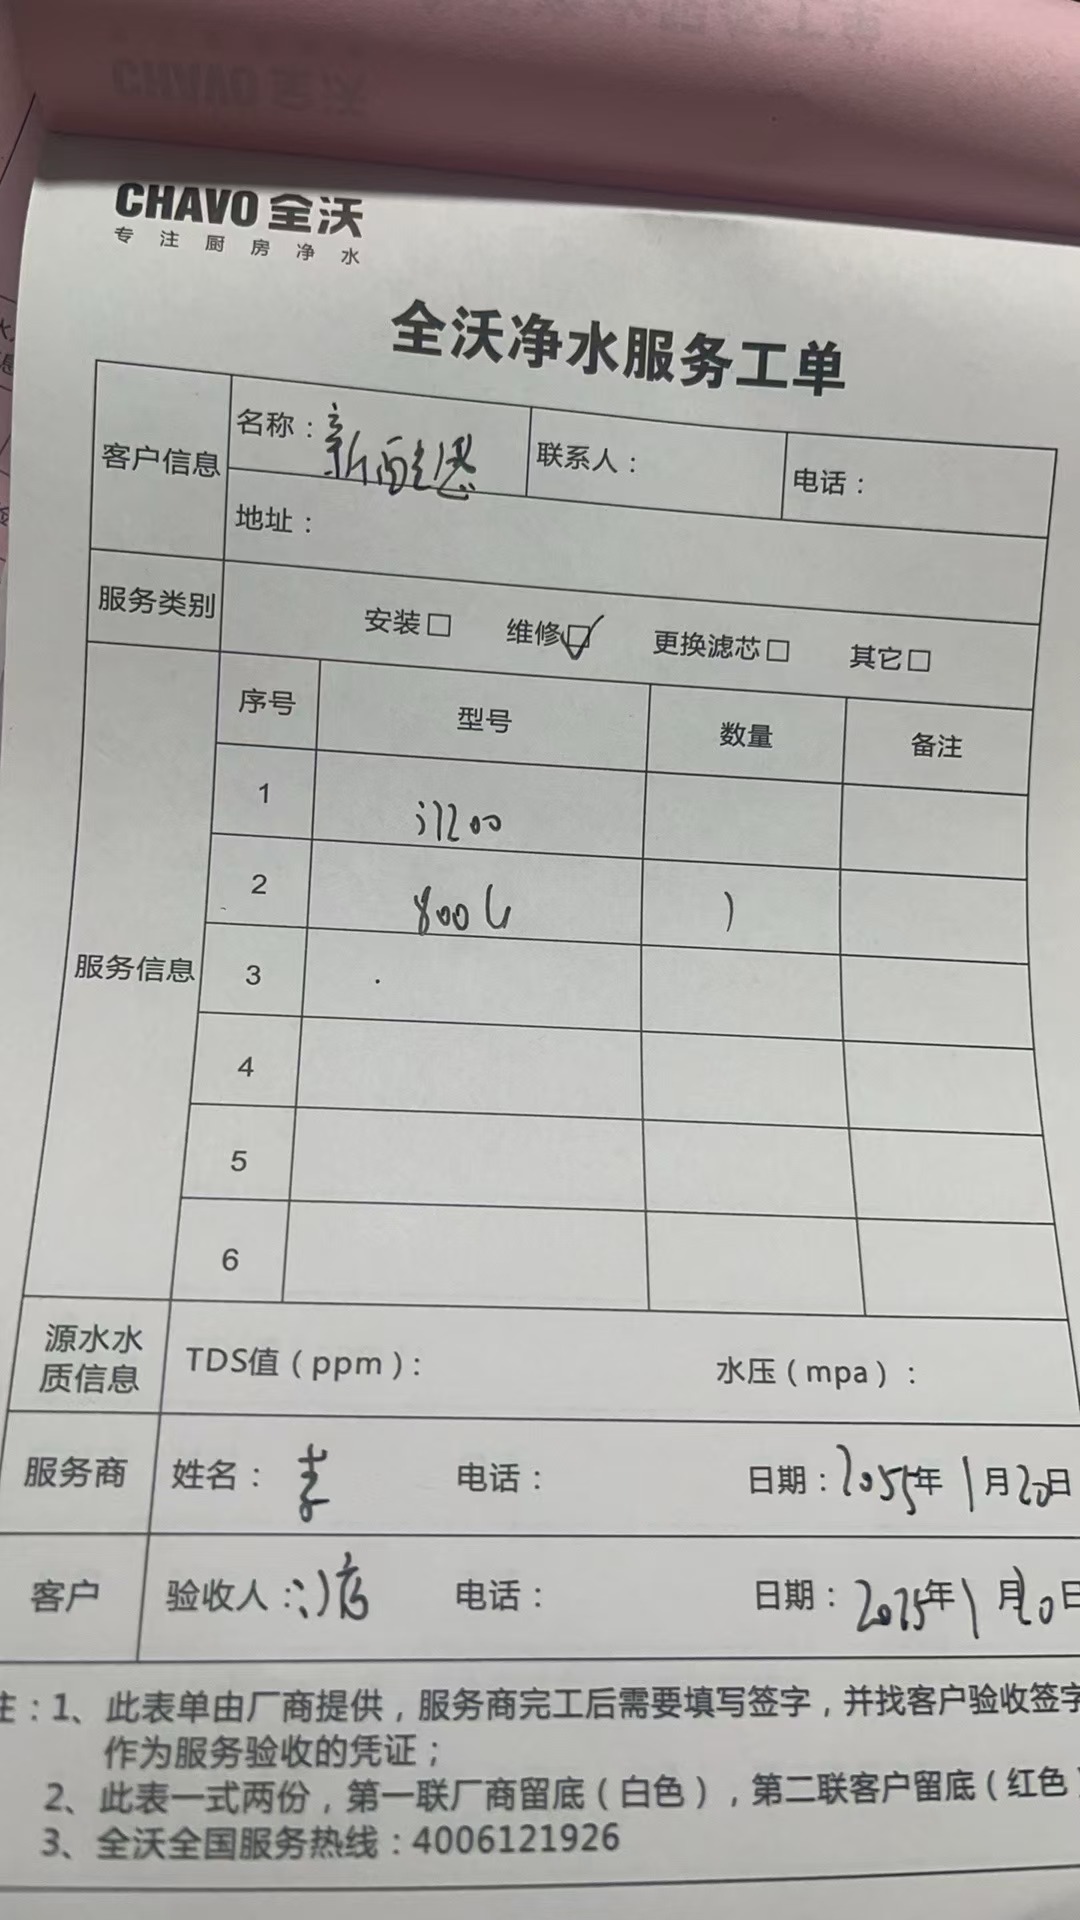 CHAVO 全沃
专注厨房净水
全沃净水服务工单
客户信息 名称：新 联系人： 电话：
地址：
服务类别 安装□ 维修☑ 更换滤芯□ 其它□
服务信息 序号 型号 数量 备注
1
2 800G 1
3
4
5
6
源水水质信息 TDS值（ppm）: 水压（mpa）:
服务商 姓名：李 电话： 日期：年1月20日
客户 验收人： 电话： 日期：2025年1月20日
注：1、此表单由厂商提供，服务商完工后需要填写签字，并找客户验收签字
作为服务验收的凭证；
2、此表一式两份，第一联厂商留底（白色），第二联客户留底（红色）
3、全沃全国服务热线：4006121926